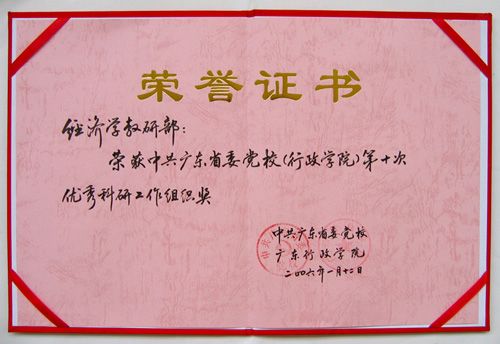 荣誉证书
经济学教研部：
荣获中共广东省委党校(行政学院)第十次
优秀科研工作组织奖
中共广东省委党校
广东行政学院
二〇〇六年一月十二日